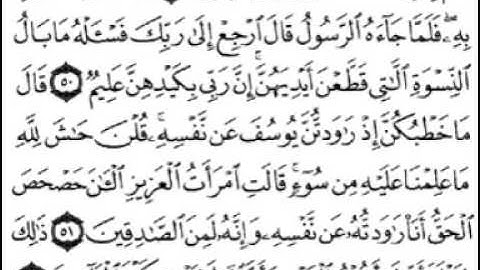 بِهِۦۖ فَلَمَّا جَآءَهُ ٱلرَّسُولُ قَالَ ٱرْجِعْ إِلَىٰ رَبِّكَ فَسْـَٔلْهُ مَا بَالُ
ٱلنِّسْوَةِ ٱلَّٰتِى قَطَّعْنَ أَيْدِيَهُنَّۚ إِنَّ رَبِّى بِكَيْدِهِنَّ عَلِيمٌ ۝٥٠ قَالَ
مَا خَطْبُكُنَّ إِذْ رَٰوَدتُّنَّ يُوسُفَ عَن نَّفْسِهِۦۚ قُلْنَ حَٰشَ لِلَّهِ
مَا عَلِمْنَا عَلَيْهِ مِن سُوٓءٍۚ قَالَتِ ٱمْرَأَتُ ٱلْعَزِيزِ ٱلْـَٰٔنَ حَصْحَصَ
ٱلْحَقُّ أَنَا۠ رَٰوَدتُّهُۥ عَن نَّفْسِهِۦ وَإِنَّهُۥ لَمِنَ ٱلصَّٰدِقِينَ ۝٥١ ذَٰلِكَ